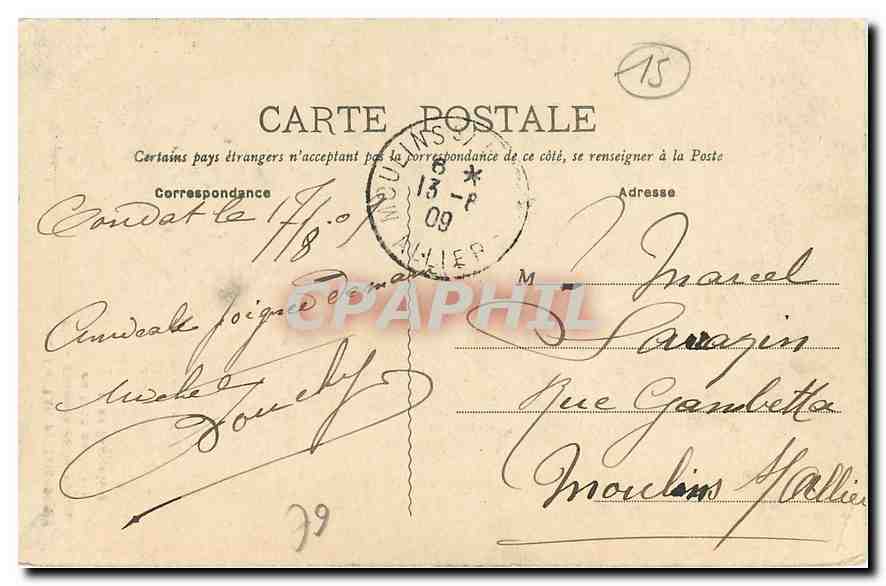 15
CARTE POSTALE
Certains pays étrangers n'acceptant pas la correspondance de ce côté, se renseigner à la Poste
Correspondance
Adresse
MOULINS S
6 *
13 -8
09
ALLIER
Condat le
Amicale poignée de main
Michel
CPAPHIL
M. Marcel
Sarazin
Rue Gambetta
Moulins s/Allier
79